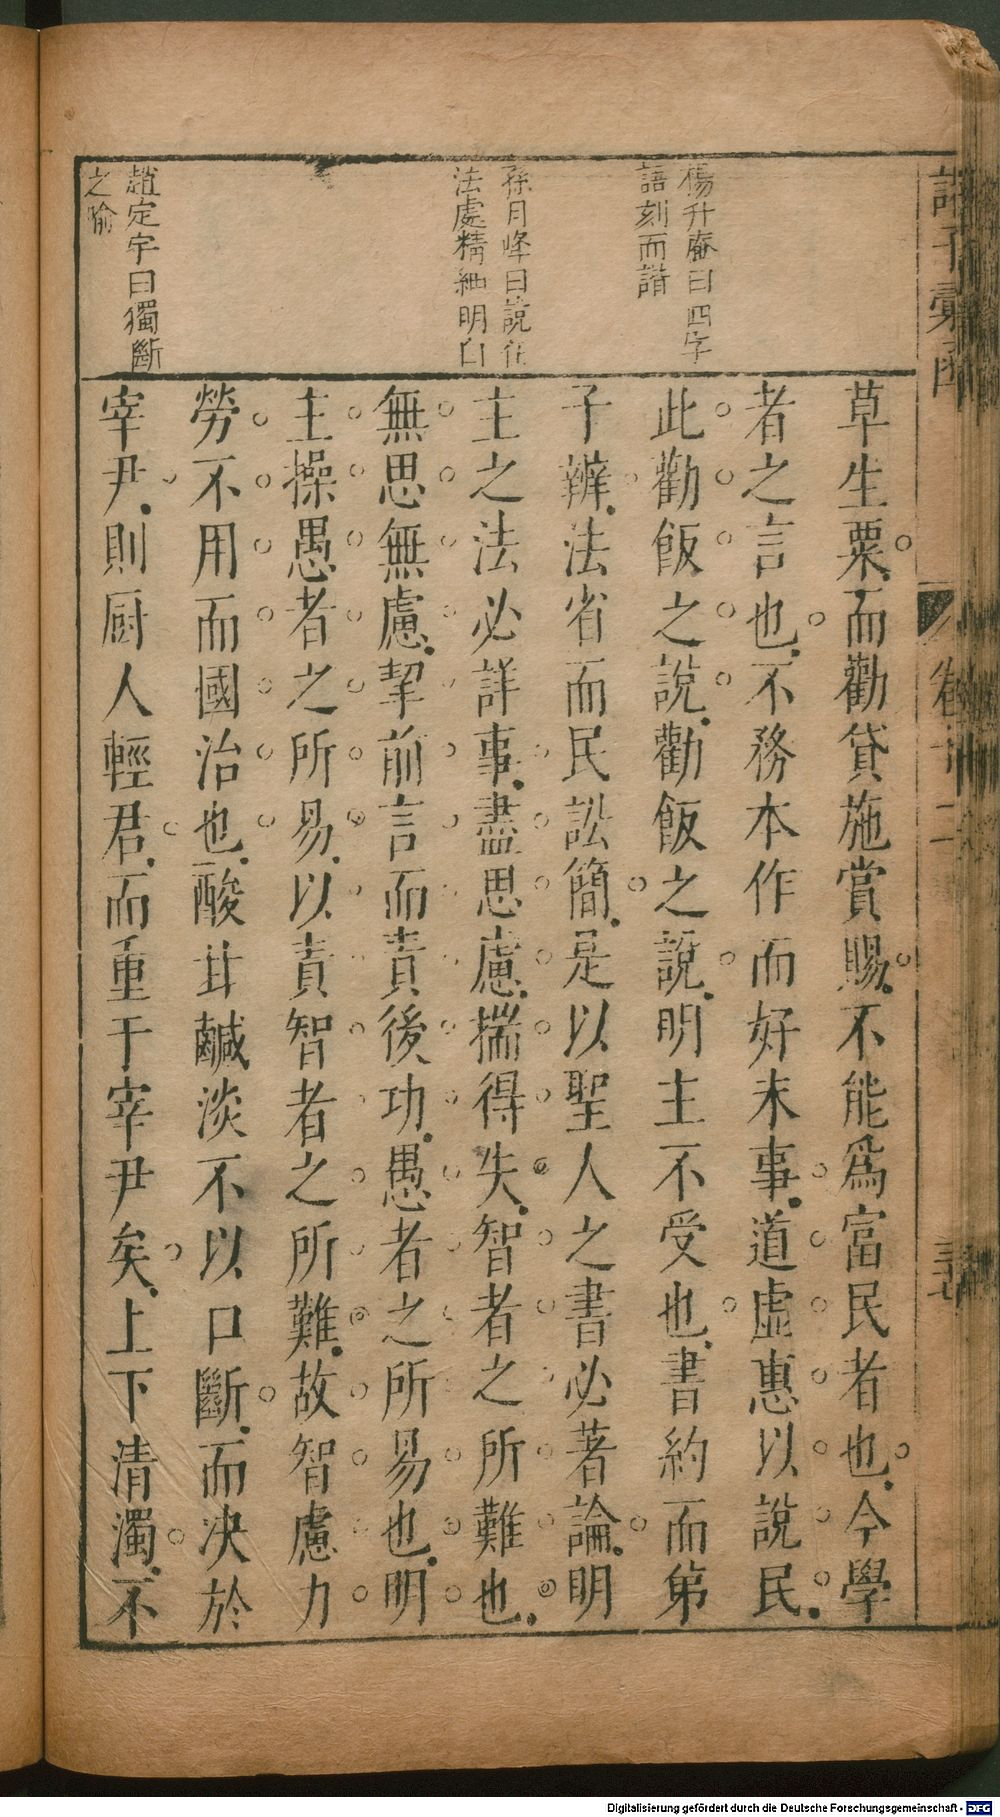 楊升庵曰四字
語刻而諧
孫月峰曰說在
法處精細明白
趙定宇曰獨斷
之喻
草生粟而勸貸施賞賜不能爲富民者也今學
者之言也不務本作而好末事道虛惠以說民
此勸飯之說勸飯之說明主不受也書約而弟
子辯法省而民訟簡是以聖人之書必著論明
主之法必詳事盡思慮揣得失智者之所難也
無思無慮挈前言而責後功愚者之所易也明
主操愚者之所易以責智者之所難故智慮力
勞不用而國治也酸甘鹹淡不以口斷而决於
宰尹則厨人輕君而重于宰尹矣上下清濁不
卷十二
三十七
Digitalisierung gefördert durch die Deutsche Forschungsgemeinschaft - DFG